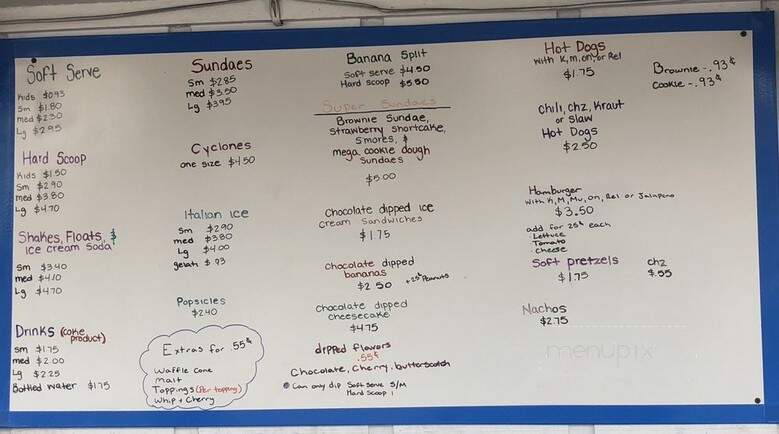 Soft Serve
Kids $0.93
Sm $1.80
med $2.30
Lg $2.95
Hard Scoop
Kids $1.50
Sm $2.90
med $3.80
Lg $4.70
Shakes, Floats, &
ice cream Soda
Sm $3.40
med $4.10
Lg $4.70
Drinks (coke product)
Sm $1.75
med $2.00
Lg $2.25
Bottled water $1.75
Sundaes
Sm $2.85
med $3.50
Lg $3.95
Cyclones
one size $4.50
Italian ice
Sm $2.90
med $3.80
Lg $4.00
gelati $.93
Popsicles
$2.40
Extras for .55¢
Waffle Cone
Malt
Toppings (Per topping)
Whip + Cherry
Banana Split
Soft serve $4.50
Hard Scoop $5.50
Super Sundaes
Brownie Sundae,
Strawberry shortcake,
S'mores, &
mega cookie dough
Sundaes
$5.00
Chocolate dipped ice
cream Sandwiches
$1.75
Chocolate dipped
bananas
$2.50 +25¢ Peanuts
Chocolate dipped
cheesecake
$4.75
dipped flavors
.55¢
Chocolate, Cherry, butterscotch
Can only dip Soft Serve S/M
Hard Scoop 1
Hot Dogs
with K, m, on, or Rel
$1.75
Chili, chz, Kraut
or Slaw
Hot Dogs
$2.50
Hamburger
with K, M, Mu, on, Rel or Jalapeno
$3.50
add for 25¢ each
Lettuce
Tomato
Cheese
Soft pretzels chz
$1.75 $.55
Nachos
$2.75
Brownie - .93¢
Cookie - .93¢
menupix